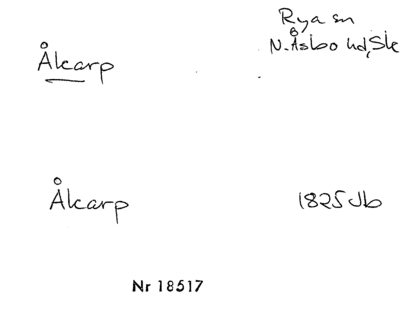 Rya sn
Ålcarp N. Åsbo hd, Sk
Ålcarp 1825 Jb
Nr 18517